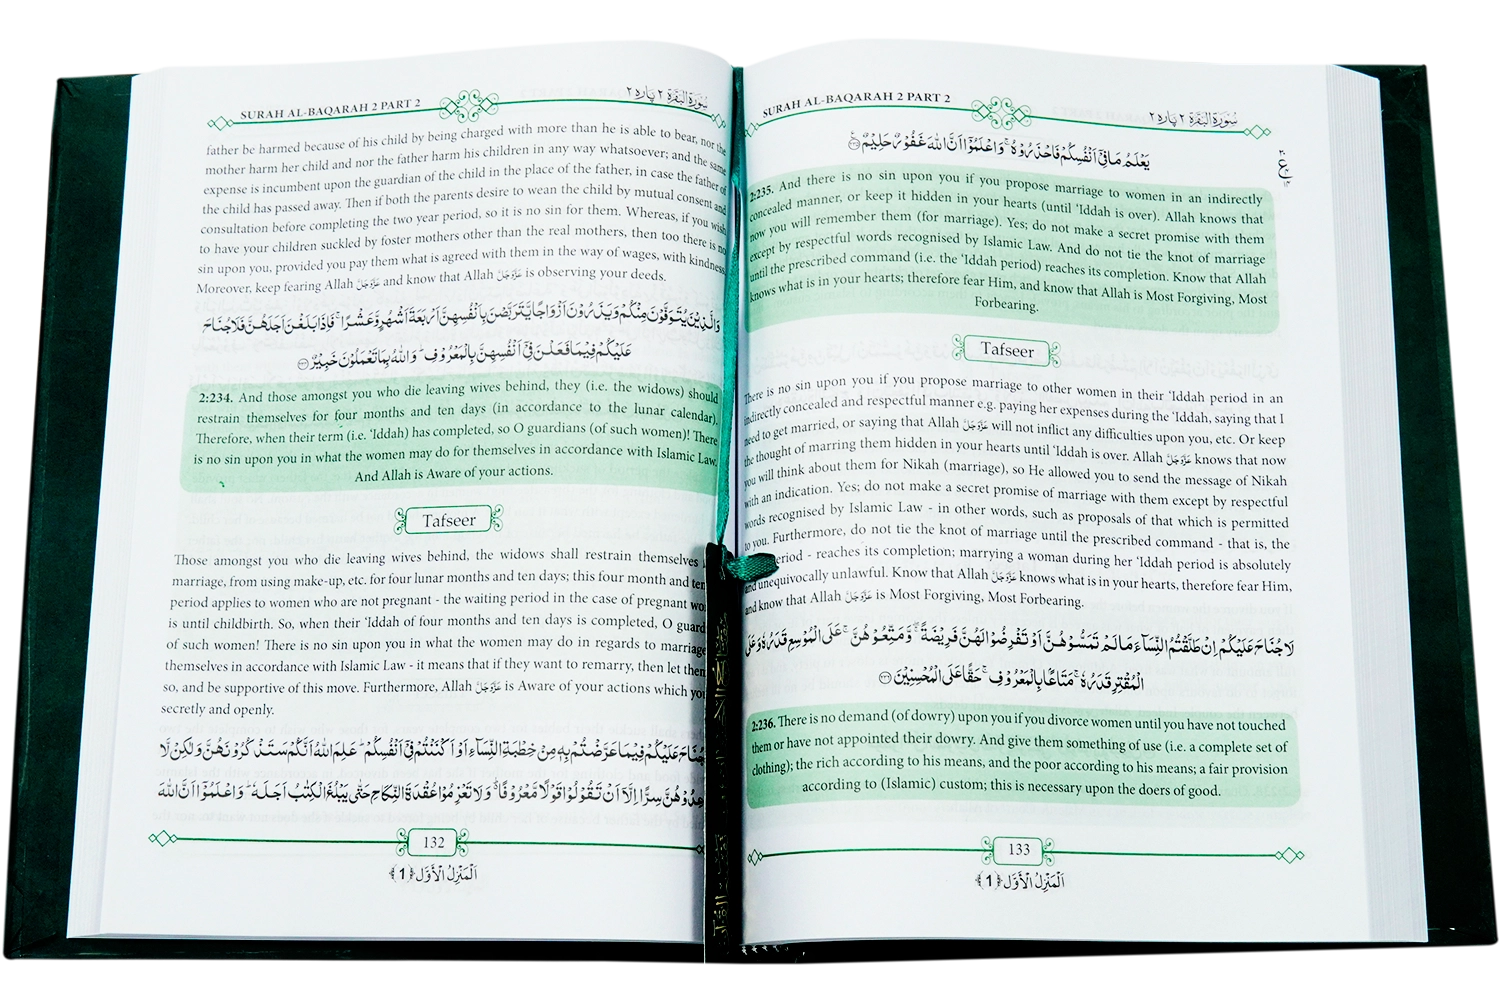 SURAH AL-BAQARAH 2 PART 2
سُوۡرَۃُ الۡبَقَرَۃ ٢ پارہ ٢
father be harmed because of his child by being charged with more than he is able to bear, nor the
mother harm her child and nor the father harm his children in any way whatsoever; and the same
expense is incumbent upon the guardian of the child in the place of the father, in case the father of
the child has passed away. Then if both the parents desire to wean the child by mutual consent and
consultation before completing the two year period, so it is no sin for them. Whereas, if you wish
to have your children suckled by foster mothers other than the real mothers, then too there is no
sin upon you, provided you pay them what is agreed with them in the way of wages, with kindness.
Moreover, keep fearing Allah عَزَّوَجَلَّ and know that Allah عَزَّوَجَلَّ is observing your deeds.
وَالَّذِیۡنَ یُتَوَفَّوۡنَ مِنۡكُمۡ وَیَذَرُوۡنَ اَزۡوَاجًا یَّتَرَبَّصۡنَ بِاَنۡفُسِهِنَّ اَرۡبَعَةَ اَشۡهُرٍ وَّعَشۡرًا ۚ فَاِذَا بَلَغۡنَ اَجَلَهُنَّ فَلَا جُنَاحَ
عَلَیۡكُمۡ فِیۡمَا فَعَلۡنَ فِیۡۤ اَنۡفُسِهِنَّ بِالۡمَعۡرُوۡفِ ؕ وَاللّٰهُ بِمَا تَعۡمَلُوۡنَ خَبِیۡرٌ ﴿٢٣٤﴾
2:234. And those amongst you who die leaving wives behind, they (i.e. the widows) should
restrain themselves for four months and ten days (in accordance to the lunar calendar).
Therefore, when their term (i.e. 'Iddah) has completed, so O guardians (of such women)! There
is no sin upon you in what the women may do for themselves in accordance with Islamic Law.
And Allah is Aware of your actions.
Tafseer
Those amongst you who die leaving wives behind, the widows shall restrain themselves
marriage, from using make-up, etc. for four lunar months and ten days; this four month and ten
period applies to women who are not pregnant - the waiting period in the case of pregnant
is until childbirth. So, when their 'Iddah of four months and ten days is completed, O
of such women! There is no sin upon you in what the women may do in regards to marriage
themselves in accordance with Islamic Law - it means that if they want to remarry, then let
so, and be supportive of this move. Furthermore, Allah عَزَّوَجَلَّ is Aware of your actions which you
secretly and openly.
جُنَاحَ عَلَیۡكُمۡ فِیۡمَا عَرَّضۡتُمۡ بِهٖ مِنۡ خِطۡبَةِ النِّسَآءِ اَوۡ اَكۡنَنۡتُمۡ فِیۡۤ اَنۡفُسِكُمۡ ؕ عَلِمَ اللّٰهُ اَنَّكُمۡ سَتَذۡكُرُوۡنَهُنَّ وَلٰكِنۡ لَّا
سِرًّا اِلَّاۤ اَنۡ تَقُوۡلُوۡا قَوۡلًا مَّعۡرُوۡفًا ۬ؕ وَلَا تَعۡزِمُوۡا عُقۡدَةَ النِّكَاحِ حَتّٰی یَبۡلُغَ الۡكِتٰبُ اَجَلَهٗ ؕ وَاعۡلَمُوۡۤا اَنَّ اللّٰهَ
132
اَلۡمَنۡزِلُ الۡاَوَّل ﴿1﴾
SURAH AL-BAQARAH 2 PART 2
سُوۡرَۃُ الۡبَقَرَۃ ٢ پارہ ٢
یَعۡلَمُ مَا فِیۡۤ اَنۡفُسِكُمۡ فَاحۡذَرُوۡهُ ۚ وَاعۡلَمُوۡۤا اَنَّ اللّٰهَ غَفُوۡرٌ حَلِیۡمٌ ﴿٢٣٥﴾
ع
2:235. And there is no sin upon you if you propose marriage to women in an indirectly
concealed manner, or keep it hidden in your hearts (until 'Iddah is over). Allah knows that
now you will remember them (for marriage). Yes; do not make a secret promise with them
except by respectful words recognised by Islamic Law. And do not tie the knot of marriage
until the prescribed command (i.e. the 'Iddah period) reaches its completion. Know that Allah
knows what is in your hearts; therefore fear Him, and know that Allah is Most Forgiving, Most
Forbearing.
Tafseer
There is no sin upon you if you propose marriage to other women in their 'Iddah period in an
indirectly concealed and respectful manner e.g. paying her expenses during the 'Iddah, saying that I
need to get married, or saying that Allah عَزَّوَجَلَّ will not inflict any difficulties upon you, etc. Or keep
the thought of marring them hidden in your hearts until 'Iddah is over. Allah عَزَّوَجَلَّ knows that now
you will think about them for Nikah (marriage), so He allowed you to send the message of Nikah
with an indication. Yes; do not make a secret promise of marriage with them except by respectful
words recognised by Islamic Law - in other words, such as proposals of that which is permitted
to you. Furthermore, do not tie the knot of marriage until the prescribed command - that is, the
period - reaches its completion; marrying a woman during her 'Iddah period is absolutely
and unequivocally unlawful. Know that Allah عَزَّوَجَلَّ knows what is in your hearts, therefore fear Him,
and know that Allah عَزَّوَجَلَّ is Most Forgiving, Most Forbearing.
لَا جُنَاحَ عَلَیۡكُمۡ اِنۡ طَلَّقۡتُمُ النِّسَآءَ مَا لَمۡ تَمَسُّوۡهُنَّ اَوۡ تَفۡرِضُوۡا لَهُنَّ فَرِیۡضَةً ۚۖ وَّمَتِّعُوۡهُنَّ ۚ عَلَی الۡمُوۡسِعِ قَدَرُهٗ وَعَلَی
الۡمُقۡتِرِ قَدَرُهٗ ۚ مَتَاعًۢا بِالۡمَعۡرُوۡفِ ۚ حَقًّا عَلَی الۡمُحۡسِنِیۡنَ ﴿٢٣٦﴾
2:236. There is no demand (of dowry) upon you if you divorce women until you have not touched
them or have not appointed their dowry. And give them something of use (i.e. a complete set of
clothing); the rich according to his means, and the poor according to his means; a fair provision
according to (Islamic) custom; this is necessary upon the doers of good.
133
اَلۡمَنۡزِلُ الۡاَوَّل ﴿1﴾